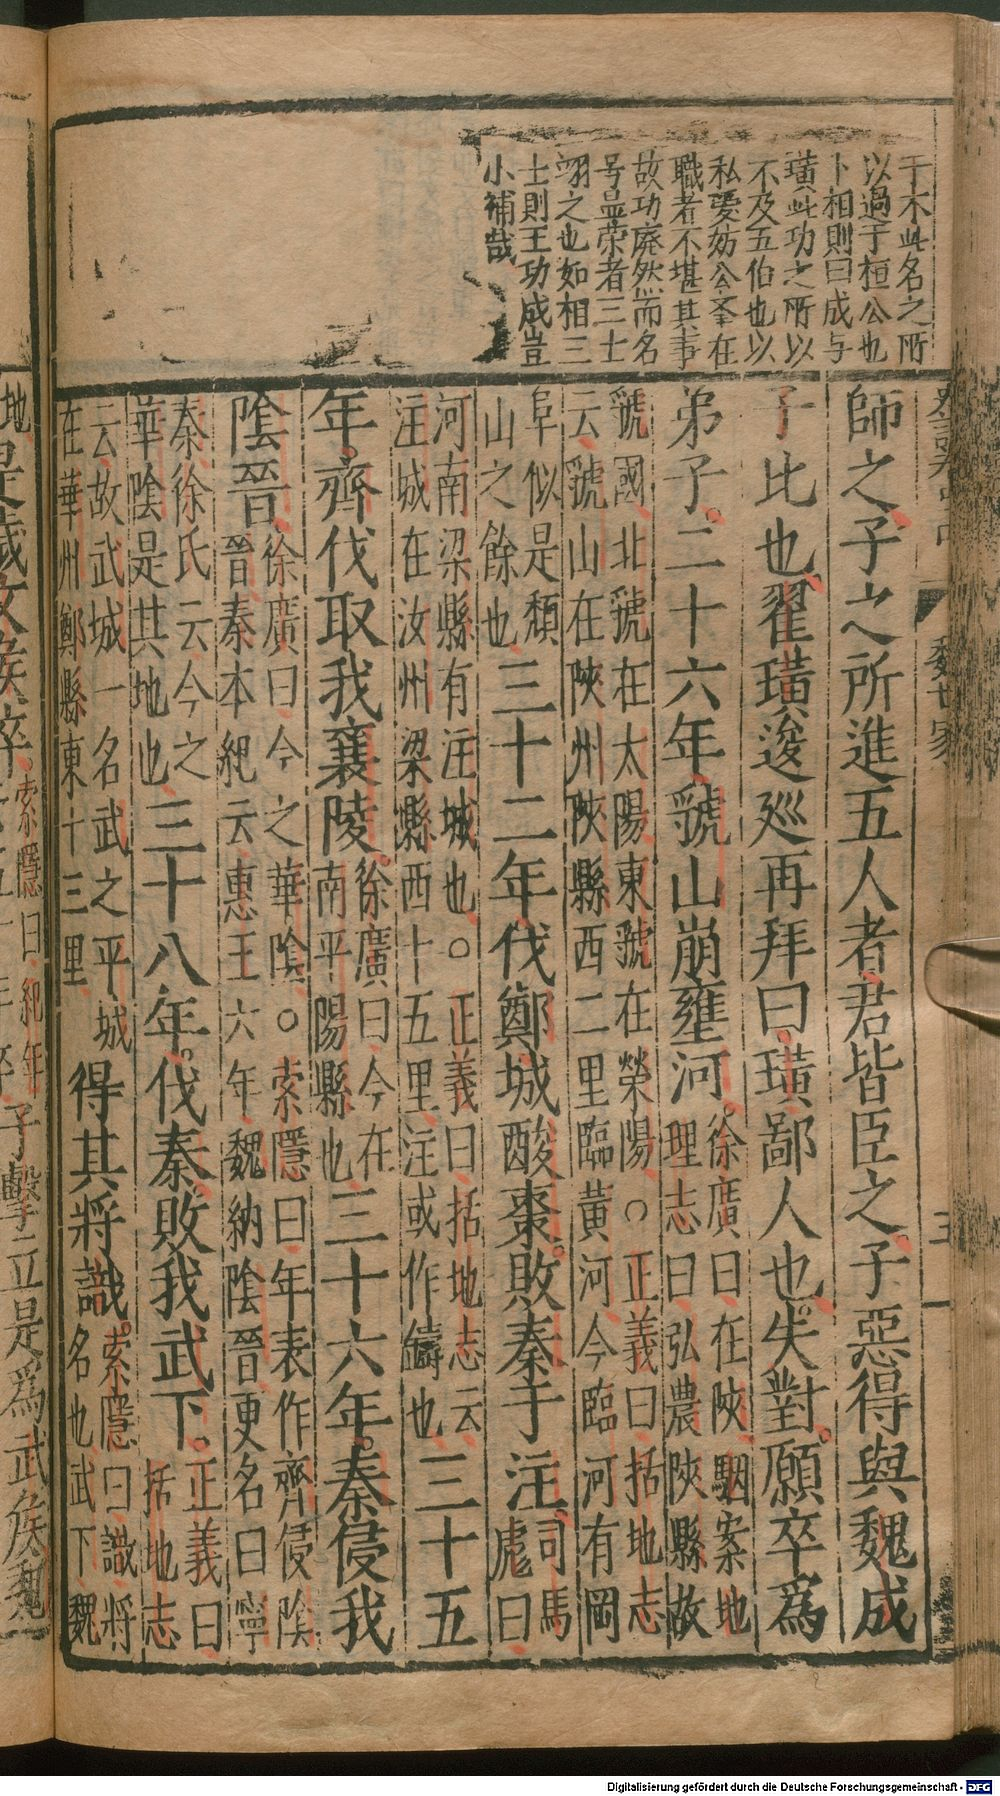 于木此名之所
以過于桓公也
卜相則曰成与
璜此功之所以
不及五伯也以
私愛妨公峯在
職者不堪其事
故功廃然而名
号显荣者三士
翊之也如相三
士則王功成豈
小補哉
師之子之所進五人者君皆臣之子惡得與魏成
子比也翟璜逡廵再拜曰璜鄙人也失對願卒為
弟子二十六年虢山崩壅河徐廣曰在陝駰案地
理志曰弘農陝縣故
虢國北虢在太陽東虢在榮陽○正義曰括地志
云虢山在陝州陝縣西二里臨黃河今臨河有岡
阜似是頹
山之餘也三十二年伐鄭城酸棗敗秦于注司馬
彪曰
河南梁縣有注城也○正義曰括地志云
注城在汝州梁縣西十五里注或作鑄也三十五
年齊伐取我襄陵徐廣曰今在
南平陽縣也三十六年秦侵我
陰晉徐廣曰今之華陰○索隱曰年表作齊侵陰
晉秦本紀云惠王六年魏納陰晉更名曰寧
秦徐氏云今之
華陰是其地也三十八年伐秦敗我武下正義曰
括地志
云故武城一名武之平城
在華州鄭縣東十三里得其將識索隱曰識將
名也武下魏
地是歲文侯卒索隱曰紀年
子擊立是為武侯魏
魏世家
五
Digitalisierung gefördert durch die Deutsche Forschungsgemeinschaft - DFG